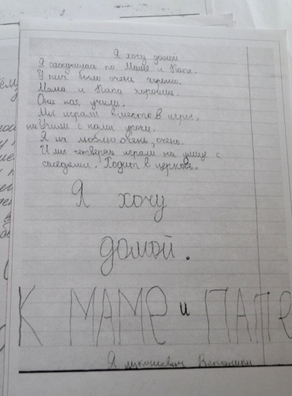 Я хочу домой
Я соскучилась по Маме и Папе.
У них было очень хорошо.
Мама и Папа хорошие.
Они нас учили.
Мы играли в много игр,
на Учили с нами уроки.
Я их люблю очень, очень.
И мы четверых играли на улице с
соседями. Ходим в церковь.
Я хочу
домой.
К МАМЕ и ПАПЕ
Я